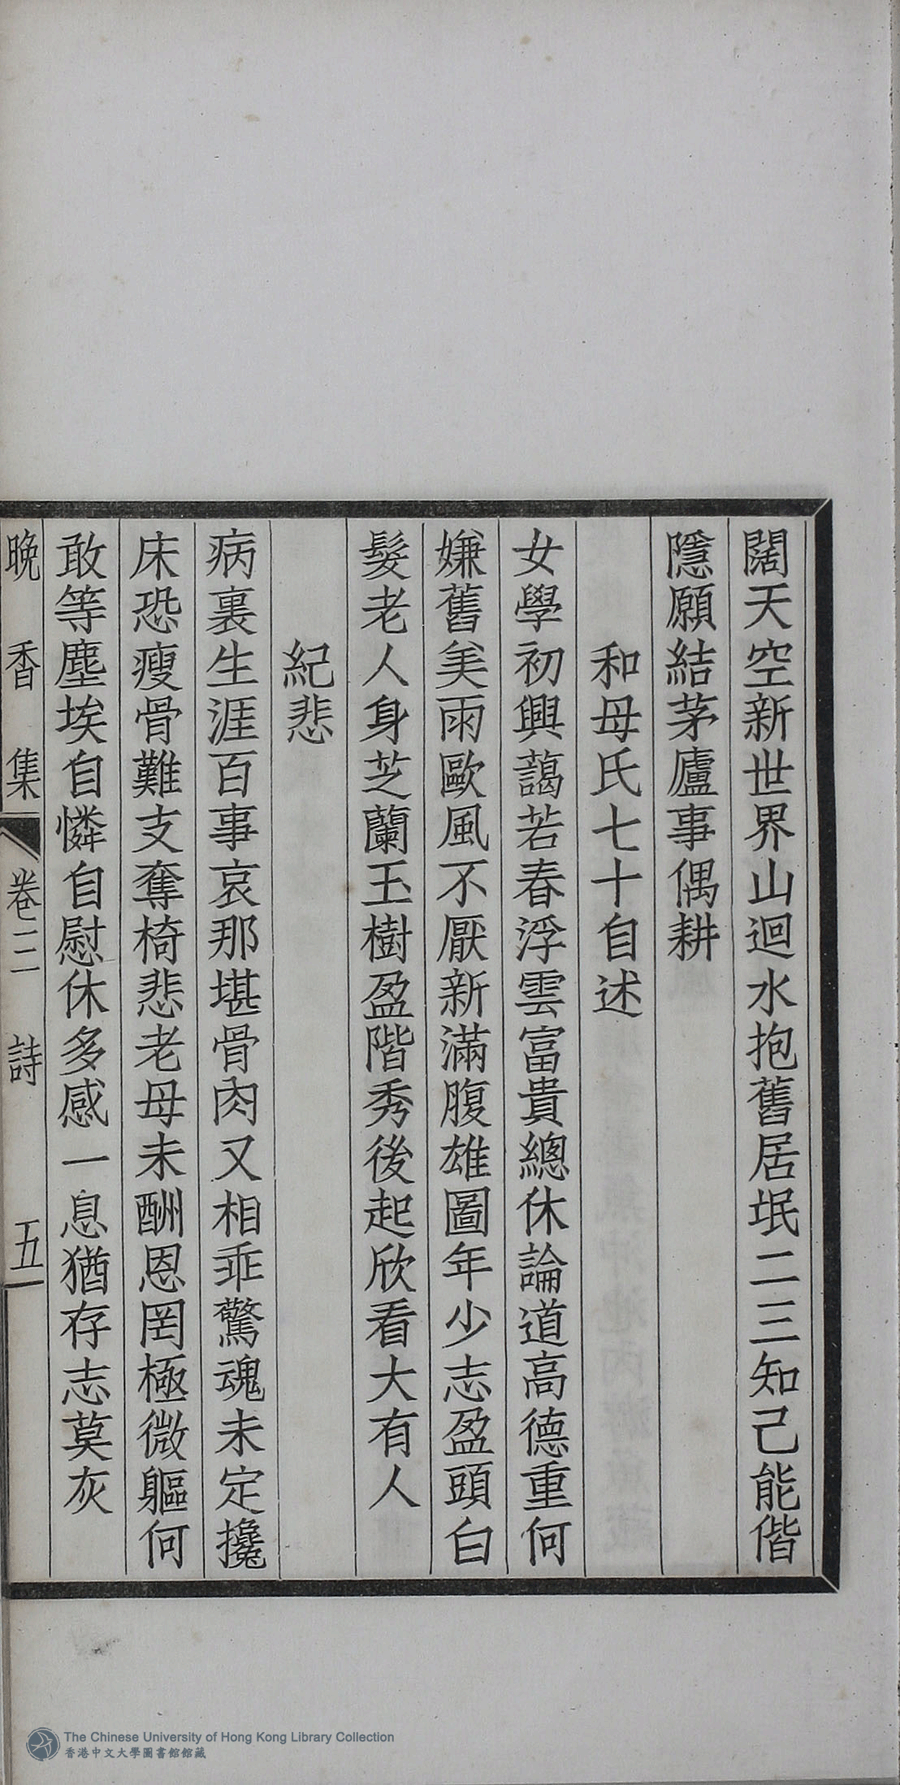 闊天空新世界山迴水抱舊居垊二三知己能偕
隱願結茅廬事偶耕
和母氏七十自述
女學初興藹若春浮雲富貴總休論道高德重何
嫌舊美雨歐風不厭新滿腹雄圖年少志盈頭白
髮老人身芝蘭玉樹盈階秀後起欣看大有人
紀悲
病裏生涯百事哀那堪骨肉又相乖驚魂未定攙
床恐瘦骨難支奪椅悲老母未酬恩罔極微軀何
敢等塵埃自憐自慰休多感一息猶存志莫灰
晚香集 卷二 詩 五
The Chinese University of Hong Kong Library Collection
香港中文大學圖書館館藏